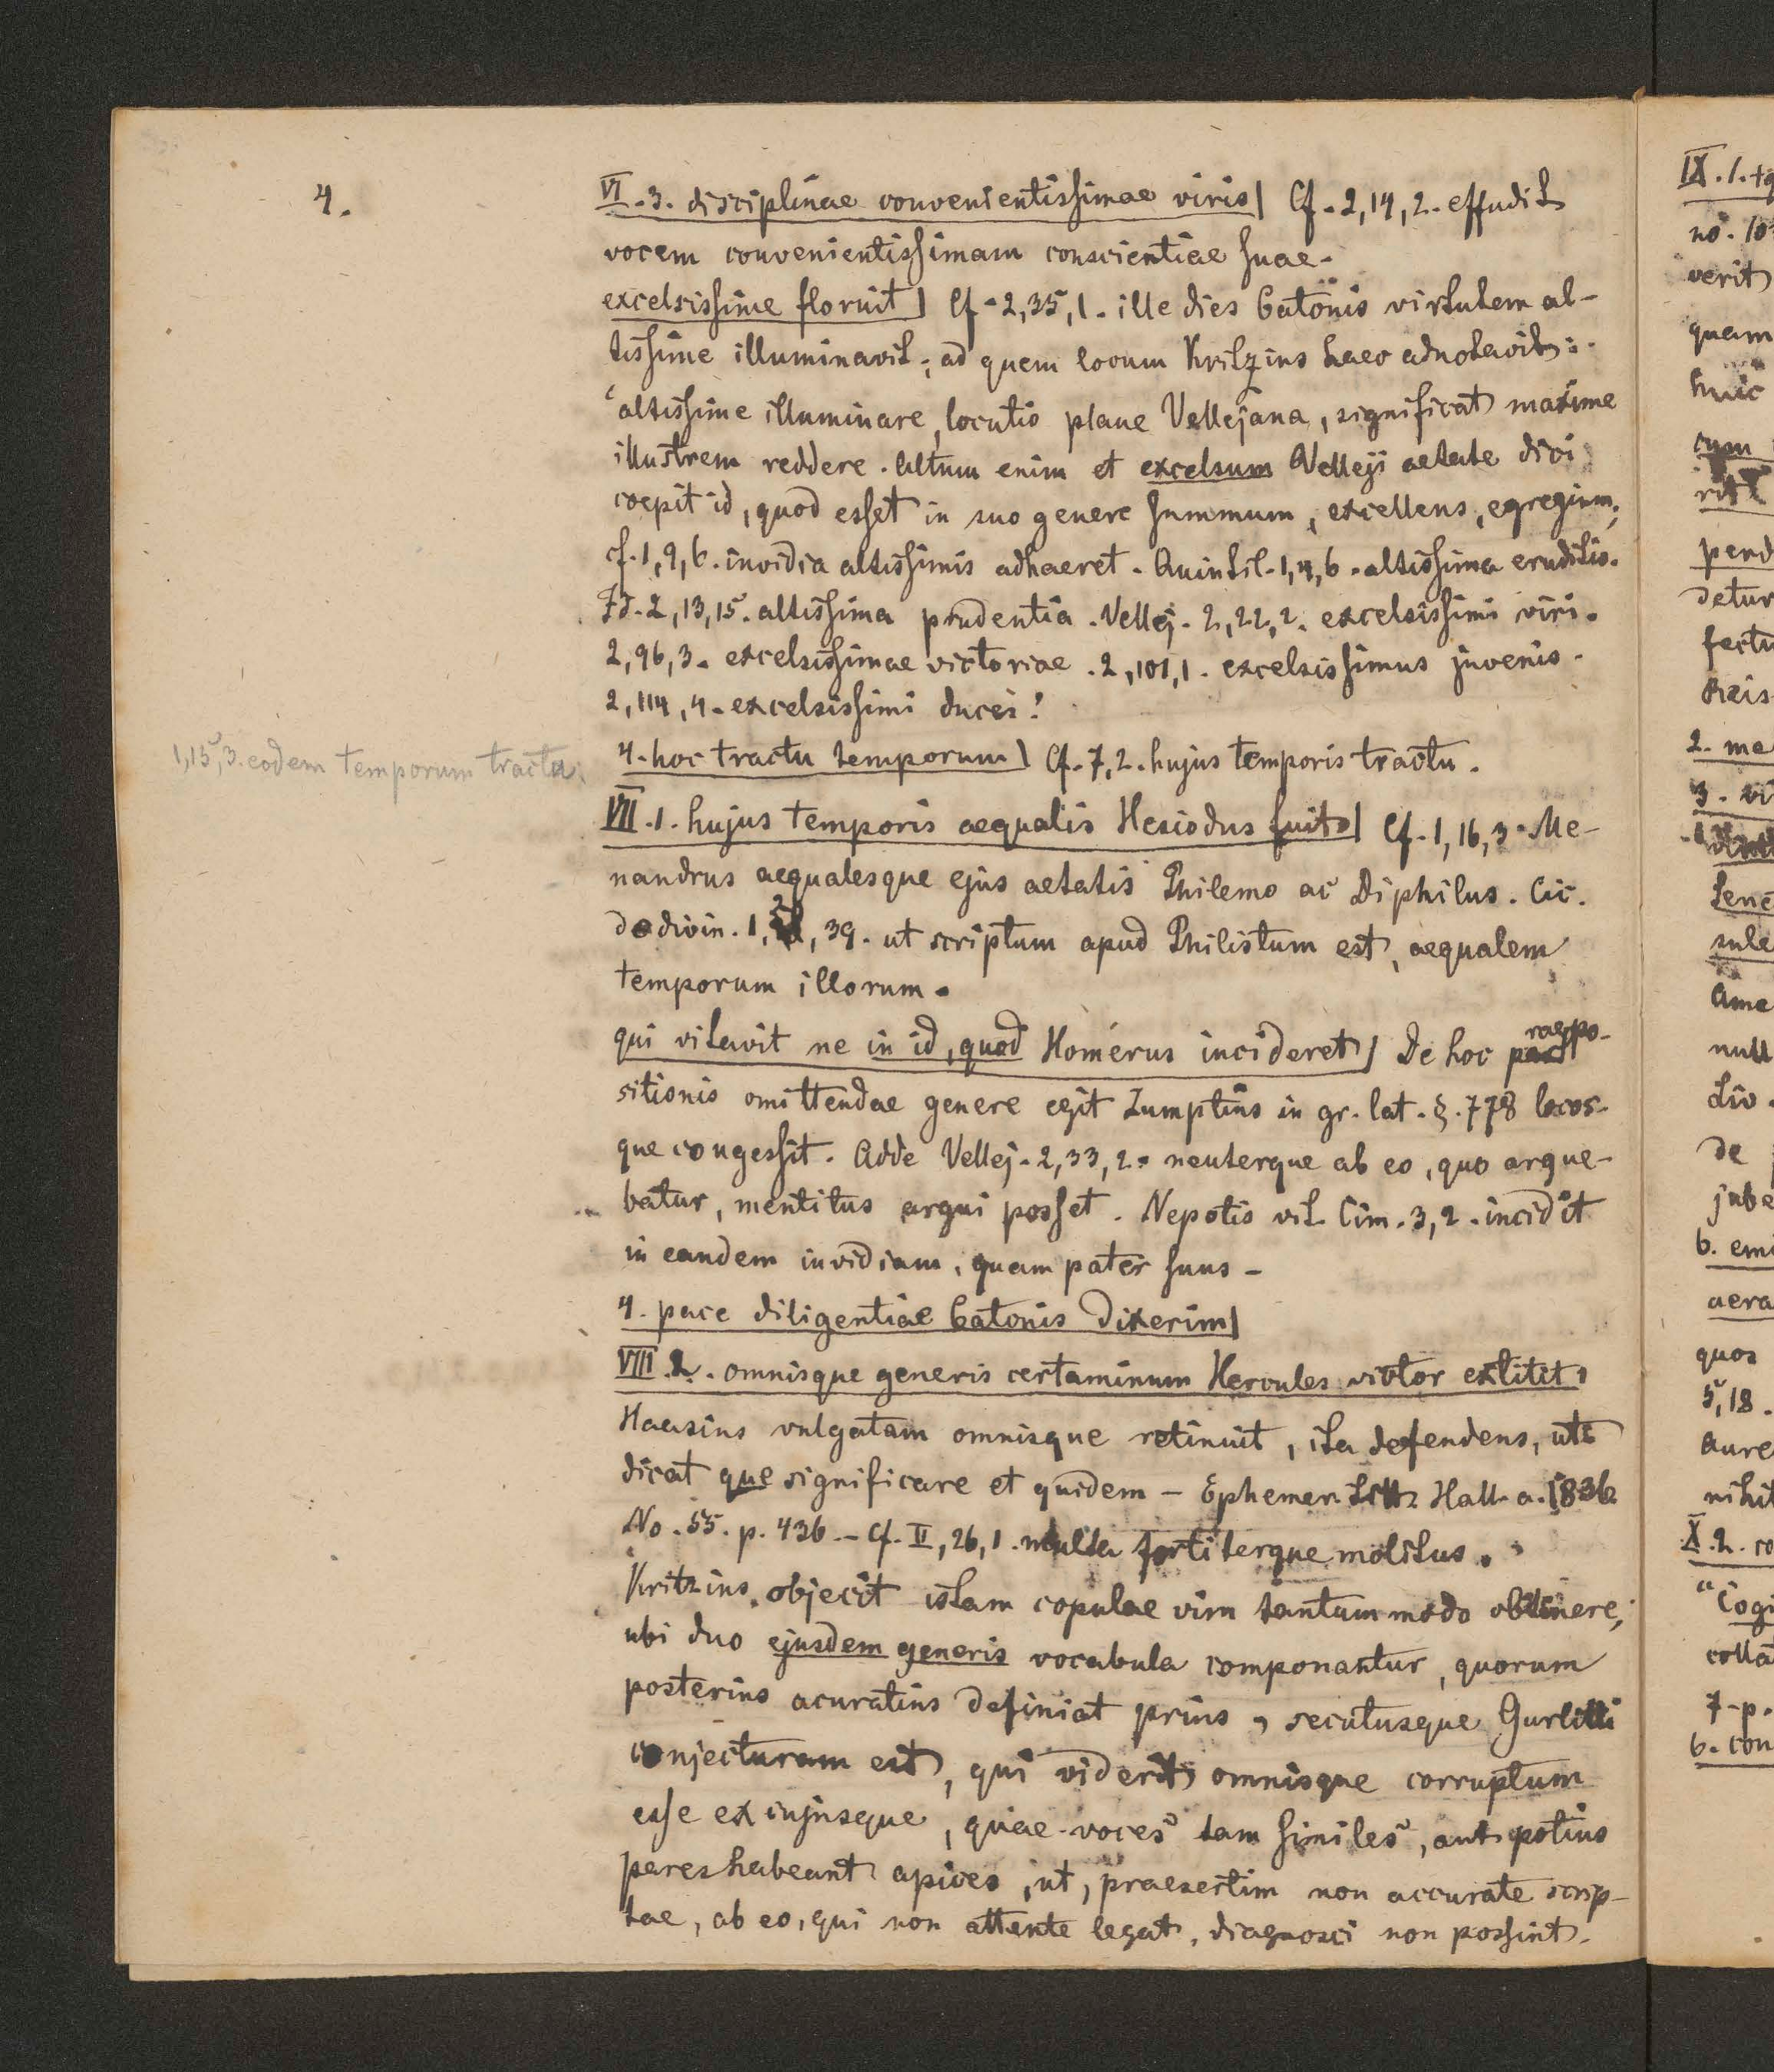 4.
VI.3. disciplinae convenientissimae viris] Cf. 2,14,2. effudit
vocem convenientissimam conscientiae suae.
excelsissime floruit] Cf. 2,35,1. ille dies Catonis virtutem al-
tissime illuminavit; ad quem locum Kritzius haec adnotavit:
"altissime illuminare, locutio plane Vellejana, significat maxime
illustrem reddere. Altum enim et excelsum Velleji aetate dici
coepit id, quod esset in suo genere summum, excellens, egregium;
cf. 1,9,6. invidia altissimis adhaeret. Quintil. 1,4,6. altissima eruditio.
Id. 2,13,15. altissima prudentia. Vellej. 2,22,2. excelsissimi viri.
2,96,3. excelsissimae victoriae. 2,101,1. excelsissimus juvenis.
2,114,4. excelsissimi ducis!
1,15,3. eodem temporum tractu.
4. hoc tractu temporum] Cf. 7,2. hujus temporis tractu.
VII.1. hujus temporis aequalis Hesiodus fuit] Cf. 1,16,3. Me-
nandrus aequalesque ejus aetatis Philemo ac Diphilus. Cic.
de divin. 1, , 39. ut scriptum apud Philistum est, aequalem
temporum illorum.
qui vitavit ne in id, quod Homerus incideret] De hoc praepo-
sitionis omittendae genere egit Zumptius in gr. lat. §. 778 locos-
que congessit. Adde Vellej. 2,33,2. neuterque ab eo, quo argue-
batur, mentitus argui posset. Nepotis vit. Cim. 3,2. incidit
in eandem invidiam, quam pater suus –
4. pace diligentiae Catonis dixerim]
VIII.2. omnisque generis certaminum Hercules victor extitit]
Haasius vulgatam omnisque retinuit, ita defendens, ut
dicat que significare et quidem – Ephemer. Litt. Hall. a. 1836
No. 55. p. 436. – Cf. II, 26, 1. multa fortiterque molitus.
Kritzius objecit istam copulae vim tantummodo obtinere,
ubi duo ejusdem generis vocabula componantur, quorum
posterius acuratius definiat prius, secutusque Gurlitti
conjecturam est, qui viderit omnisque corruptum
esse ex cujusque, quae voces tam similes, aut potius
pares habeant apices, ut, praesertim non accurate scrip-
tae, ab eo, qui non attente legat, diagnosci non possint.
IX.1.
verit
quam
huic
cum
2. me
de
quos
5,18.
"Cogi
7. p.
6. con